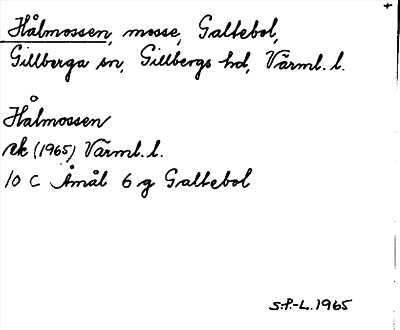 Hålmossen, mosse, Galtebol,
Gillberga sn, Gillbergs hd, Värml. l.
Hålmossen
rk (1965) Värml. l.
10 C Åmål 6 g Galtebol
S.P.-L. 1965